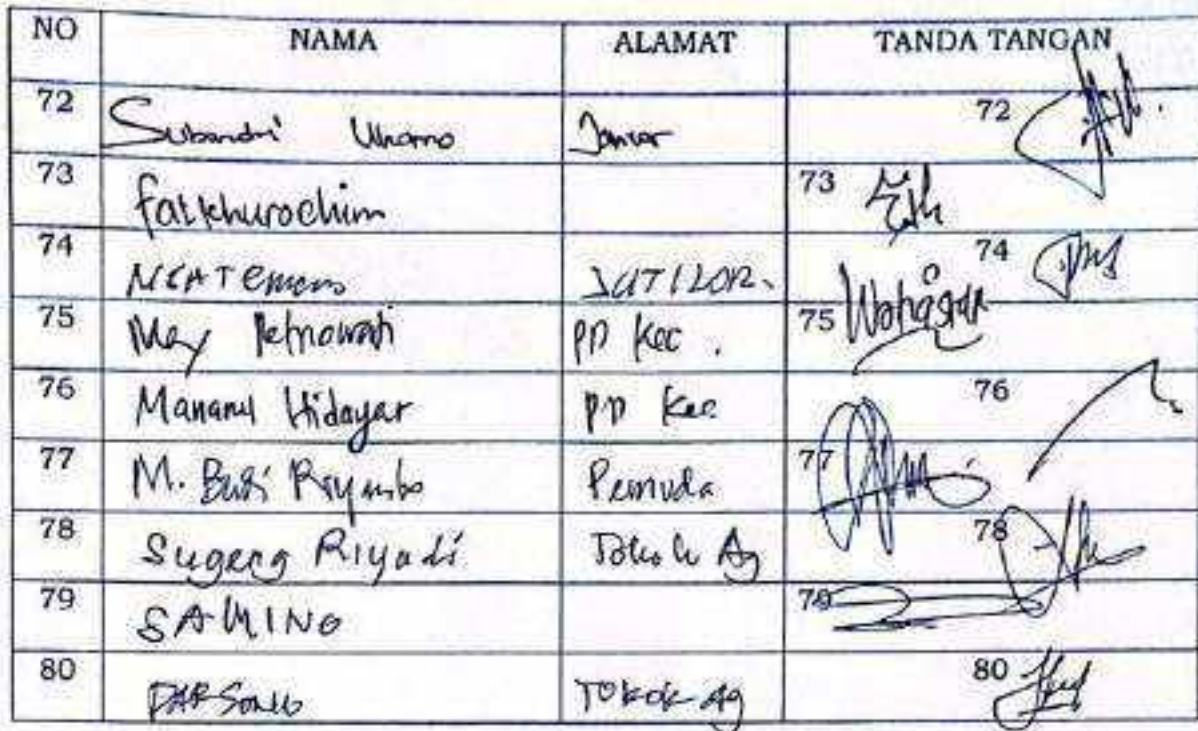 NO NAMA ALAMAT TANDA TANGAN
72 Subandri Utomo 72
73 Fatkhurochim 73
74 JATILOR. 74
75 May Retnowati PP Kec. 75
76 Manarul Hidayat PP Kec 76
77 M. Budi Pemuda 77
78 Sugeng Riyadi Tokoh Ag 78
79 SAMINO 79
80 PARSONO TOKOH Ag 80